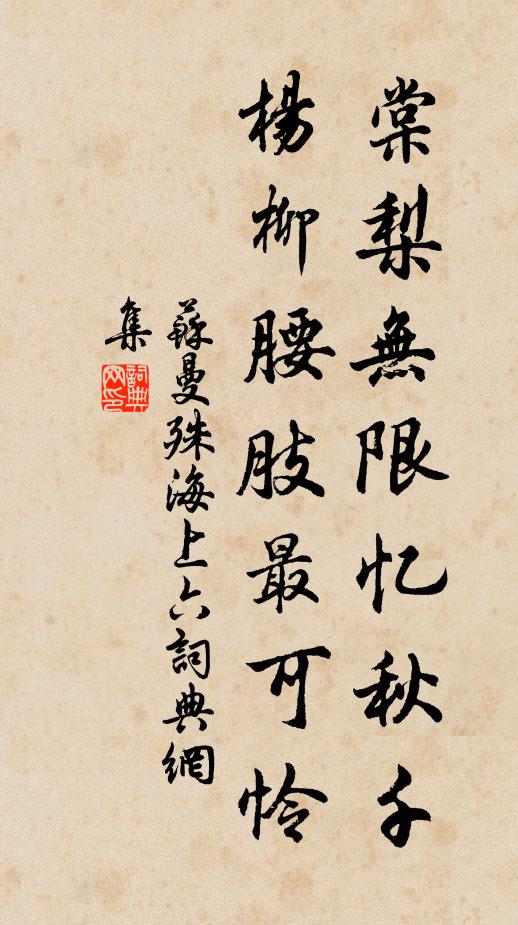 棠梨無限忆秋千
楊柳腰肢最可怜
蘇曼殊海上六詞典網
集
詞典网印